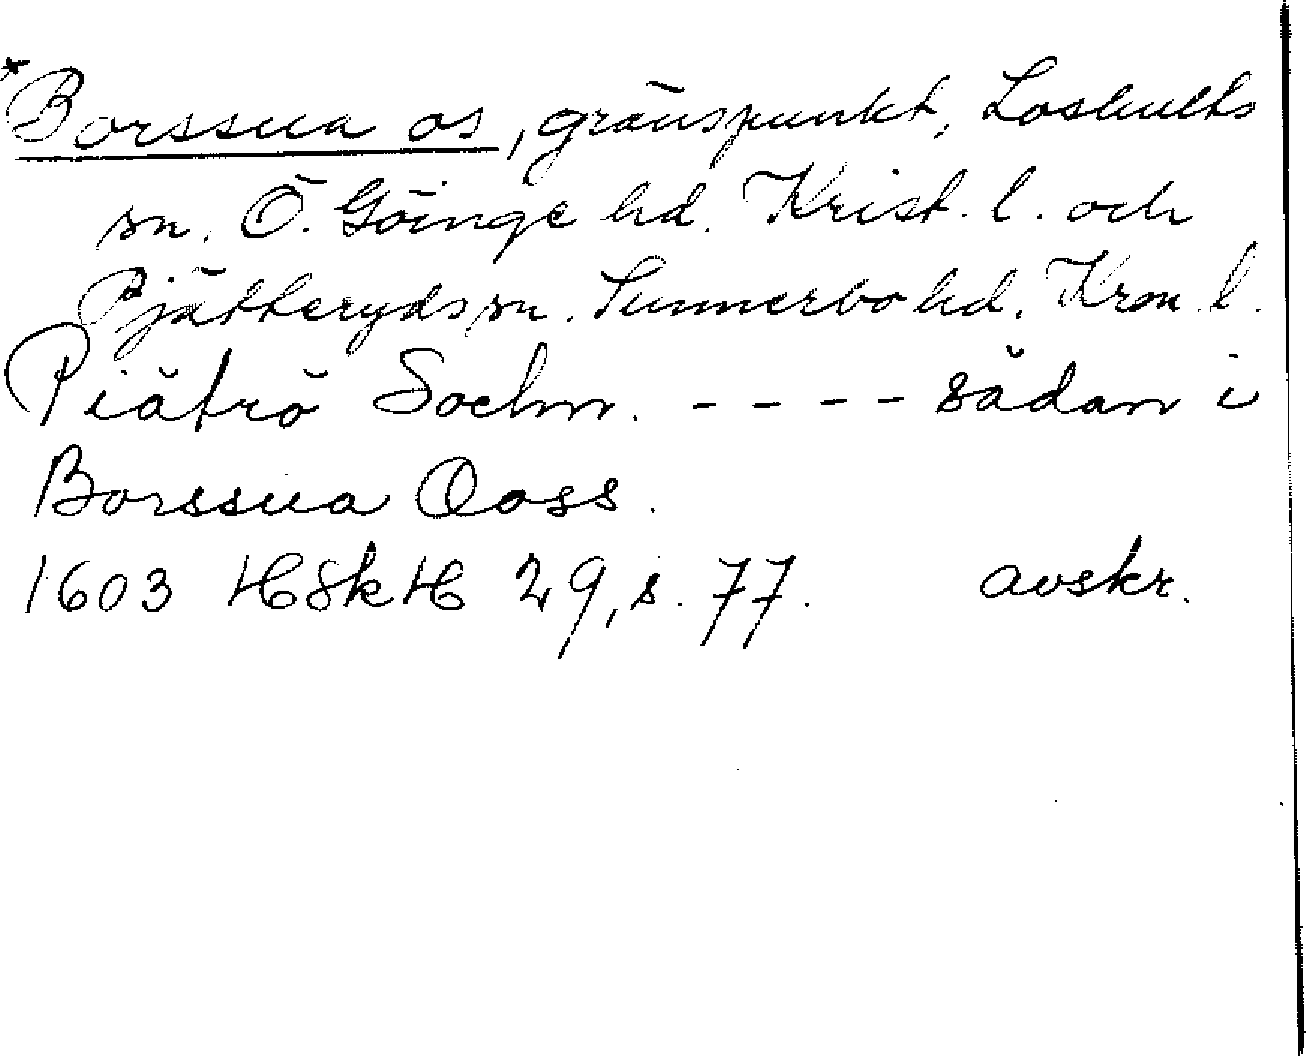 *Borssua os, gränspunkt, Loshults
sn. Ö. Göinge hd. Krist. l. och
Pjätteryds sn. Sunnerbo hd. Kron. l.
Piätrö Soehn. - - - - sådan i
Borssua Ooss.
1603 HSkH 29, s. 77. avskr.